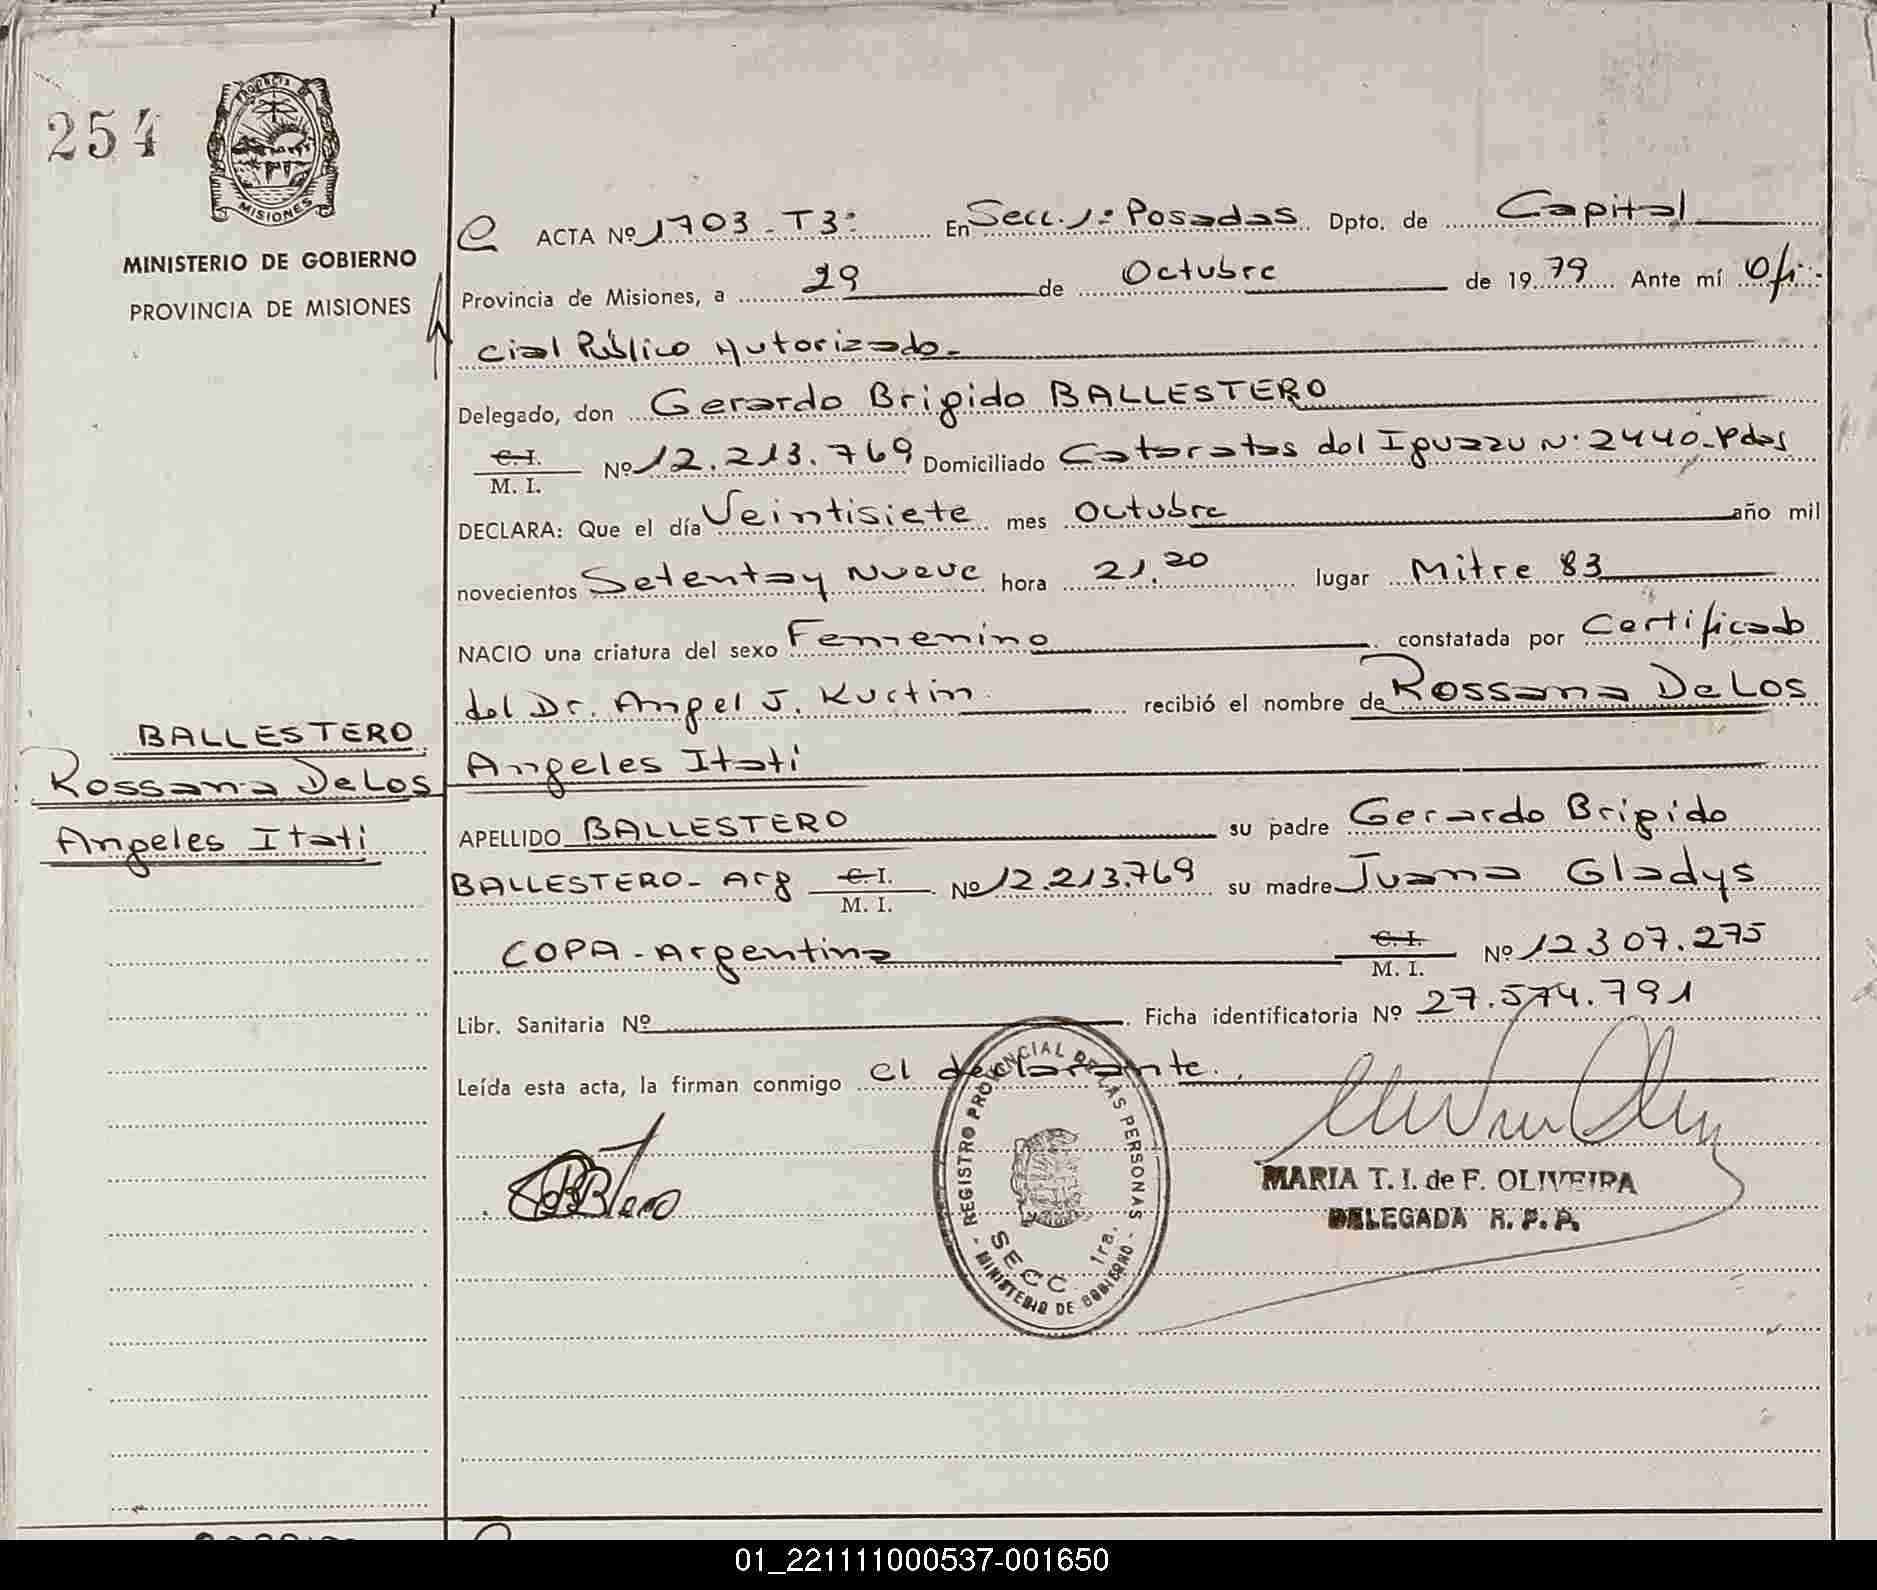 254
PROVINCIA DE
MISIONES
MINISTERIO DE GOBIERNO
PROVINCIA DE MISIONES
ACTA Nº 1703 - T3: En Secc. 1: Posadas Dpto. de Capital
Provincia de Misiones, a 29 de Octubre de 19 79 Ante mí Ofi
cial Público Autorizado.-
Delegado, don Gerardo Brigido BALLESTERO
C. I.
M. I. Nº 12.213.769 Domiciliado Cataratas del Iguazu N: 2440- Pdas
DECLARA: Que el día Veintisiete mes Octubre año mil
novecientos Setenta y Nueve hora 21,20 lugar Mitre 83
NACIO una criatura del sexo Femenino constatada por Certificado
del Dr. Angel J. recibió el nombre de Rossana De Los
Angeles Itati
BALLESTERO
Rossana De Los
Angeles Itati
APELLIDO BALLESTERO su padre Gerardo Brigido
BALLESTERO - Arg C. I.
M. I. Nº 12.213.769 su madre Juana Gladys
COPA - Argentina C. I.
M. I. Nº 12307.275
Libr. Sanitaria Nº Ficha identificatoria Nº 27.574.791
Leída esta acta, la firman conmigo el declarante.
REGISTRO PROVINCIAL DE LAS PERSONAS
SECC. 1ra.
- MINISTERIO DE GOBIERNO -
MARIA T. I. de F. OLIVEIRA
DELEGADA R. P. P.
01_221111000537-001650